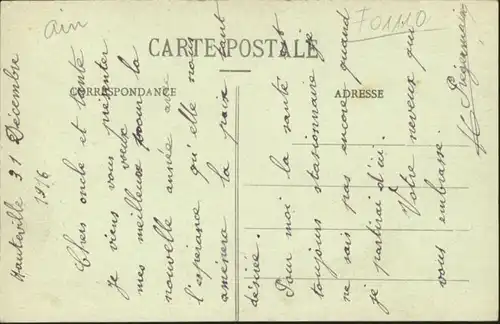 Ain
F01110
CARTE POSTALE
CORRESPONDANCE
ADRESSE
Hauteville 31 Décembre
1916
Chers oncle et tante
Je viens vous présenter
mes meilleurs vœux pour la
nouvelle année avec
l'espérance qu'elle nous
amènera la paix tant
désirée.
Pour moi la santé est
toujours stationnaire je
ne sais pas encore quand
je partirai d'ici.
Votre neveux qui
vous embrasse.